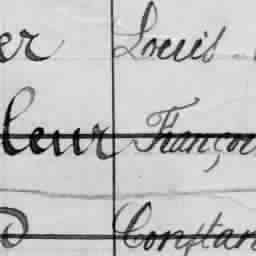 er Louis
leur Françoi
d Constan